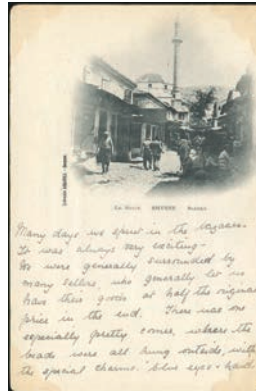 Many days we spent in the bazaar.
It was always very exciting-
We were generally surrounded by
many sellers, who generally let us
have their goods at half the original
price in the end. There was one
especially pretty corner, where the
beads were all hung outside, with
the special charms. blue eyes + hand